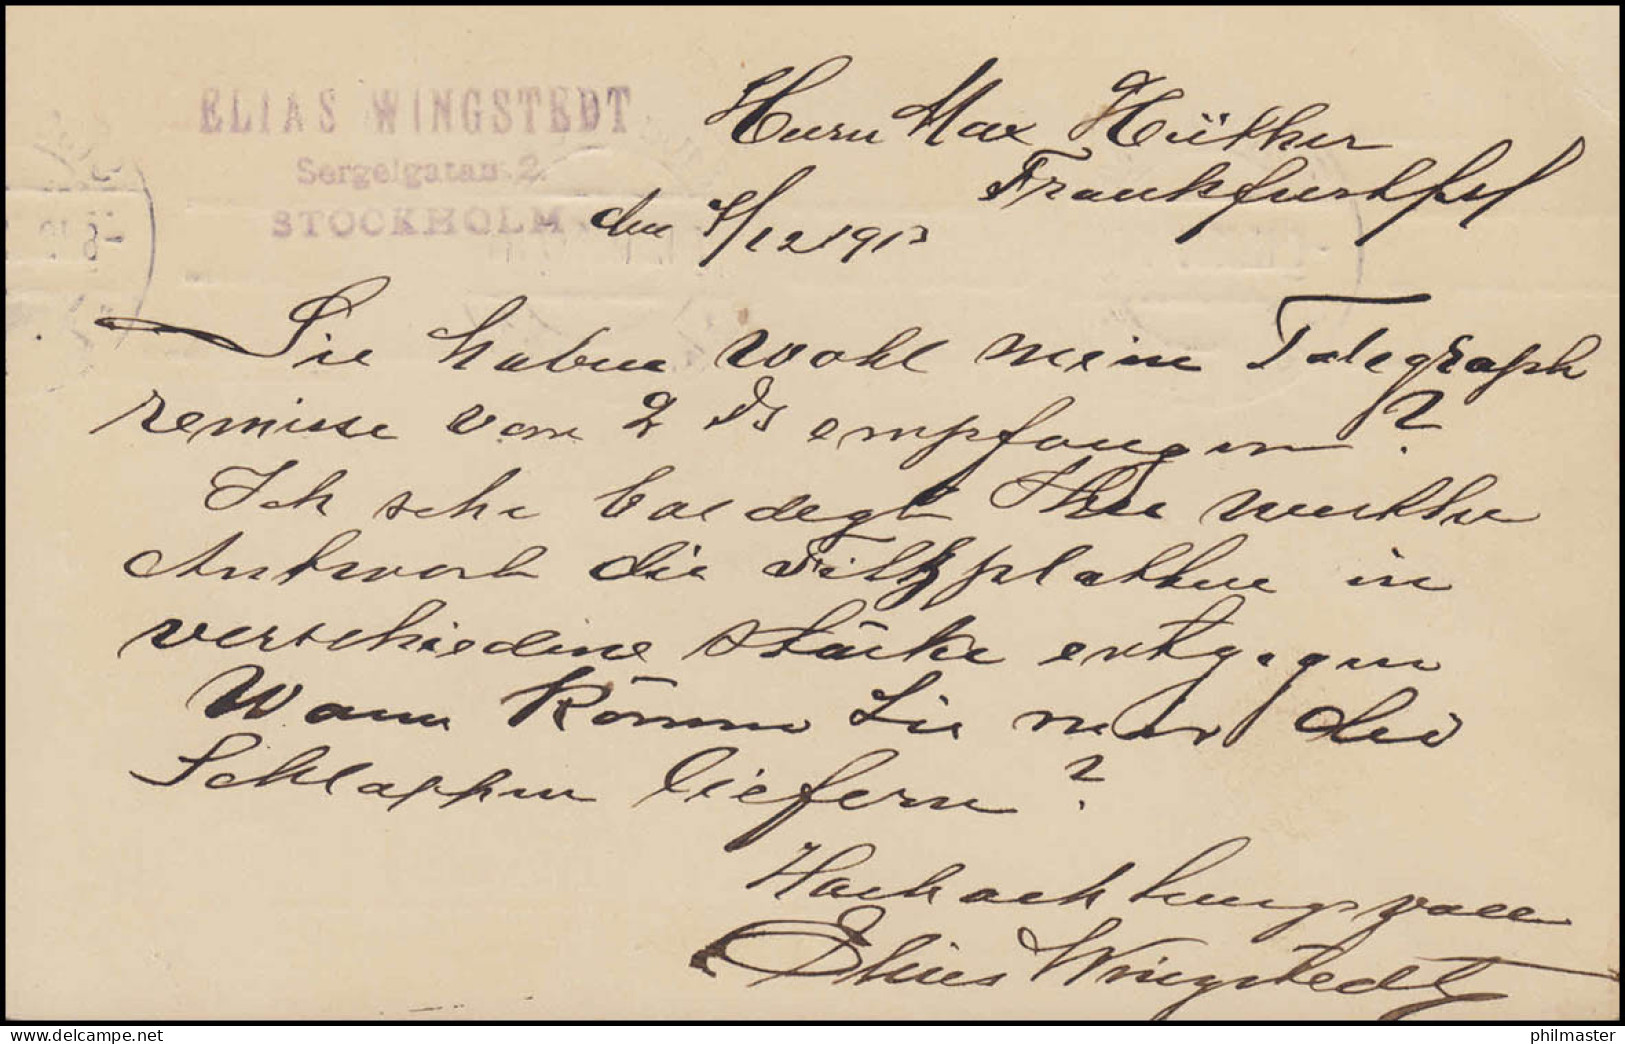 ELIAS WINGSTEDT
Sergelgatan 2.
STOCKHOLM
Herrn Max Hüther
Frankfurt
den 4/12 1913
Sie haben wohl meine Telegraph
remisse von 2 empfangen?
Ich sehe baldegt Ihre werthe
Antwort die Filtzplatten in
verschiedene Stärke entgegen
Wann können Sie mir die
Schlappen liefern?
Hochachtungsvoll
Elias Wingstedt
philmaster